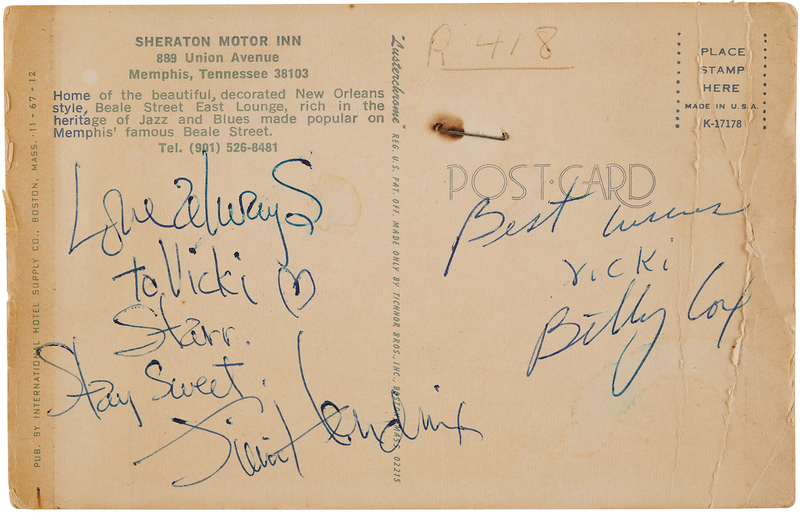 SHERATON MOTOR INN
889 Union Avenue
Memphis, Tennessee 38103
Home of the beautiful, decorated New Orleans
style, Beale Street East Lounge, rich in the
heritage of Jazz and Blues made popular on
Memphis' famous Beale Street.
Tel. (901) 526-8481
Love always
to Vicki
Starr.
Stay sweet.
Jimi Hendrix
PUB. BY INTERNATIONAL HOTEL SUPPLY CO., BOSTON, MASS. 11-67-12
"Lusterchrome" REG. U.S. PAT. OFF. MADE ONLY BY TICHNOR BROS., INC., BOSTON, MASS. 02215
R 418
PLACE
STAMP
HERE
MADE IN U.S.A.
K-17178
POST CARD
Best wishes
Vicki
Billy Cox